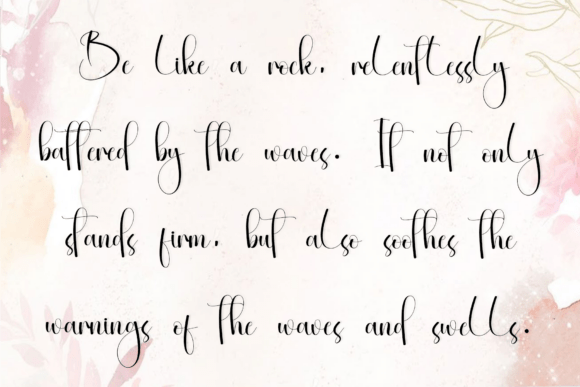 Be like a rock, relentlessly
battered by the waves. It not only
stands firm, but also soothes the
warnings of the waves and swells.